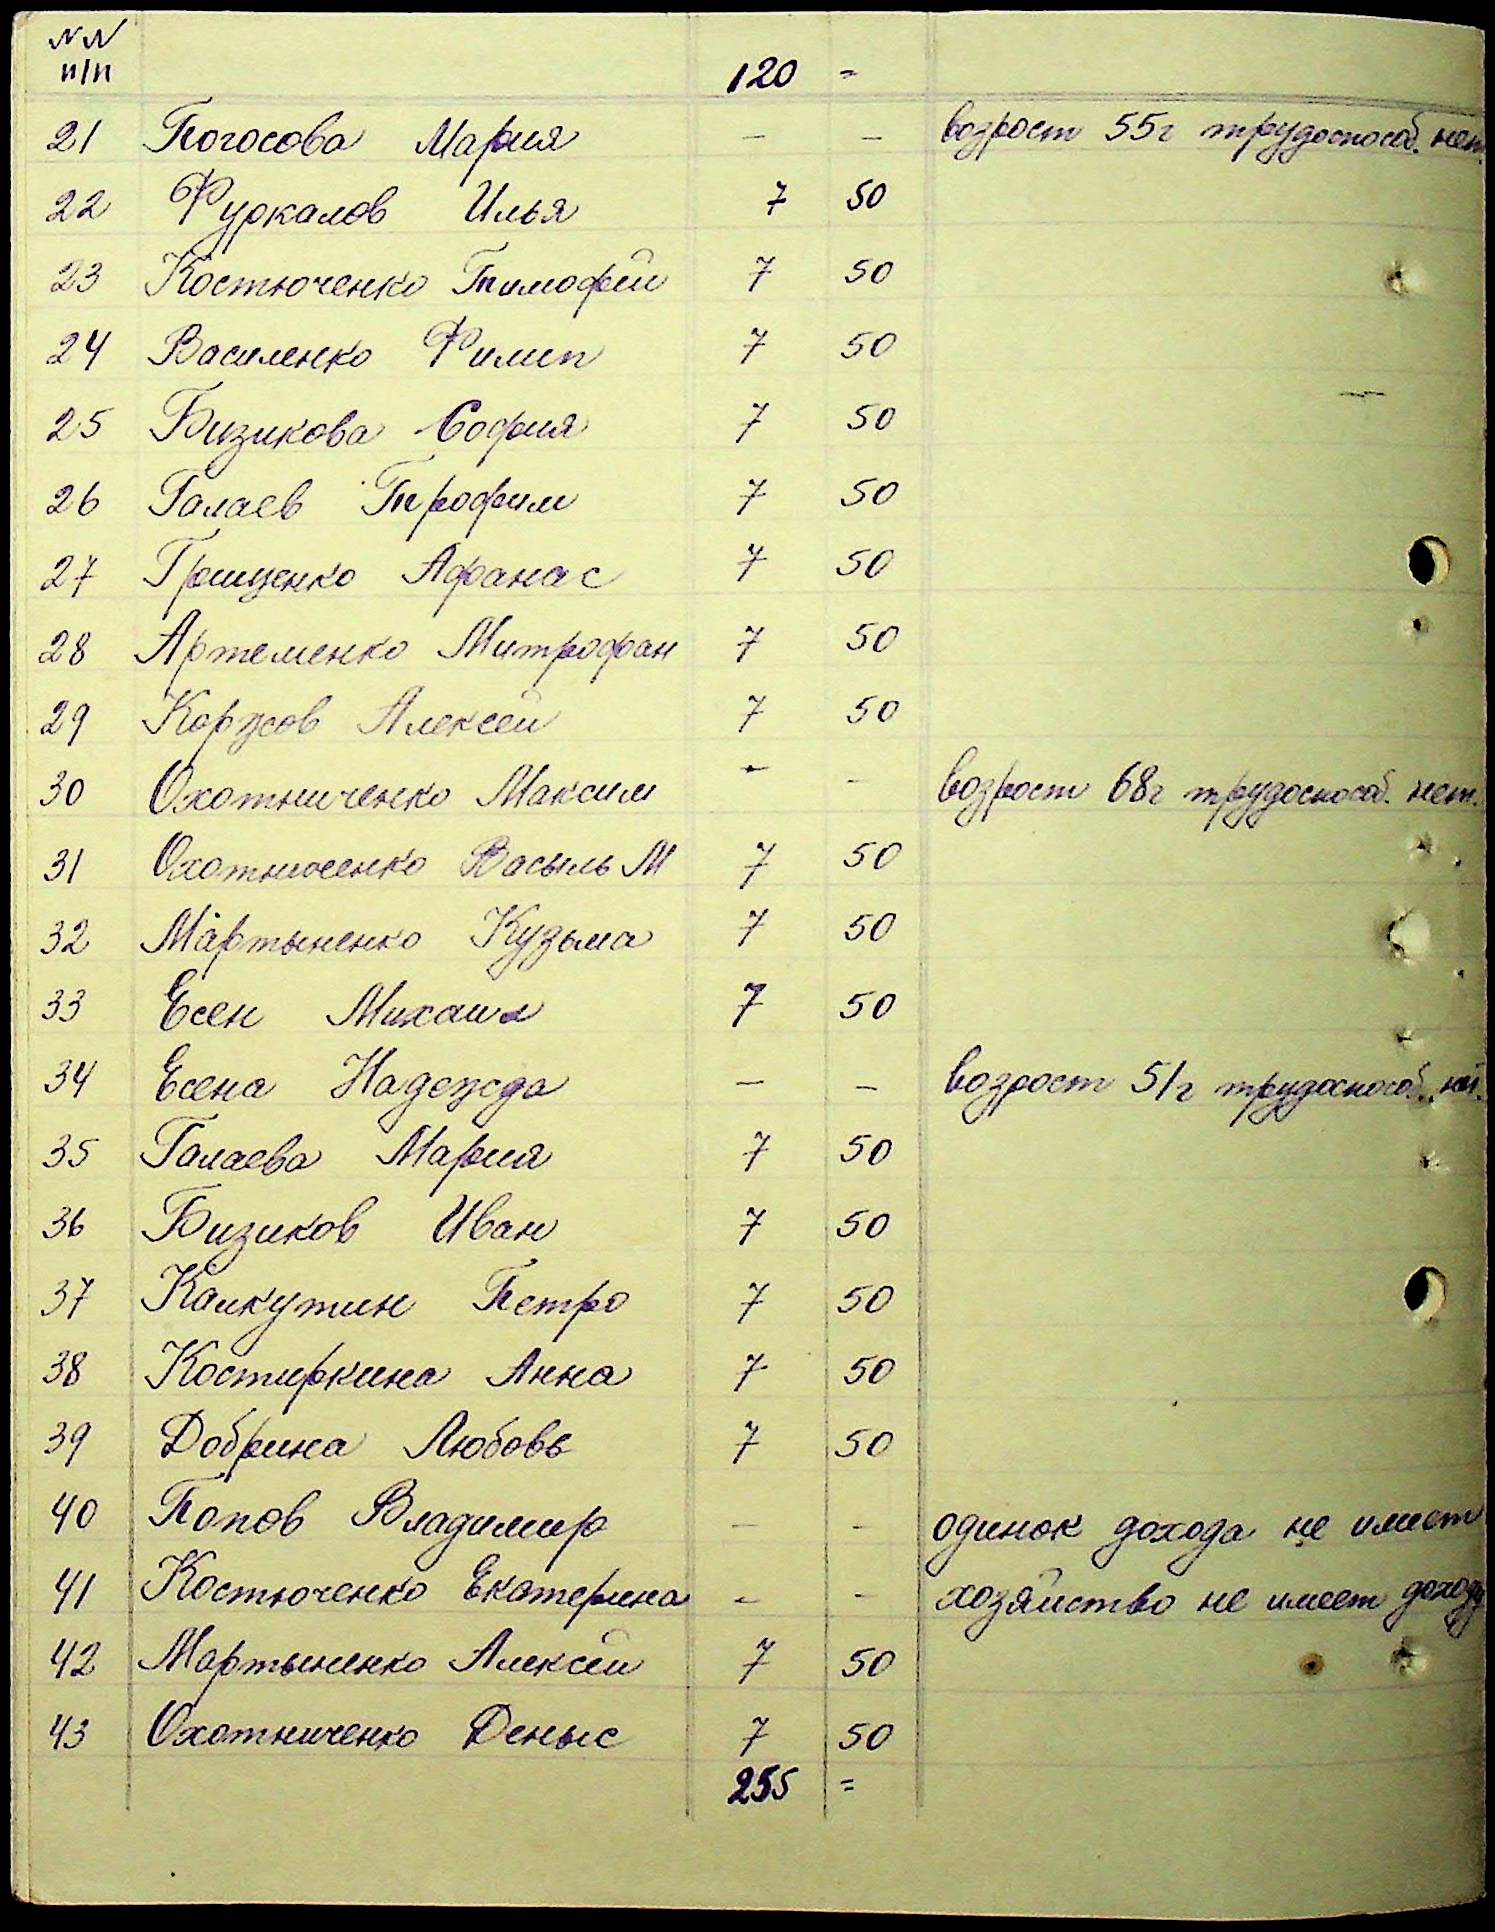 №№
п/п 120 =
21 Погосова Мария — — возрост 55г трудоспособ. нет.
22 Фуркалов Илья 7 50
23 Костюченко Тимофей 7 50
24 Василенко Филип 7 50
25 Бизикова София 7 50
26 Галаев Трофим 7 50
27 Грищенко Афанас 7 50
28 Артеменко Митрофан 7 50
29 Коржов Алексей 7 50
30 Охотниченко Максим — — возрост 68г трудоспособ. нет.
31 Охотниченко Васыль М 7 50
32 Мартыненко Кузьма 7 50
33 Есен Михаил 7 50
34 Есена Надежда — — возрост 51г трудоспособ.
35 Галаева Мария 7 50
36 Бизиков Иван 7 50
37 Калкутин Петро 7 50
38 Костиркина Анна 7 50
39 Добрина Любовь 7 50
40 Попов Владимир — — одинок дохода не имеет
41 Костюченко Екатерина — — хозяйство не имеет доходу
42 Мартыненко Алексей 7 50
43 Охотниченко Деныс 7 50
255 =